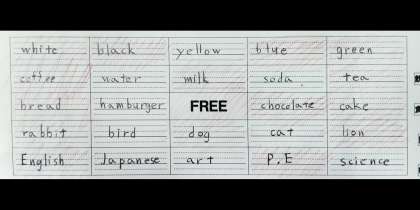 white black yellow blue green
coffee water milk soda tea
bread hamburger FREE chocolate cake
rabbit bird dog cat lion
English Japanese art P.E science